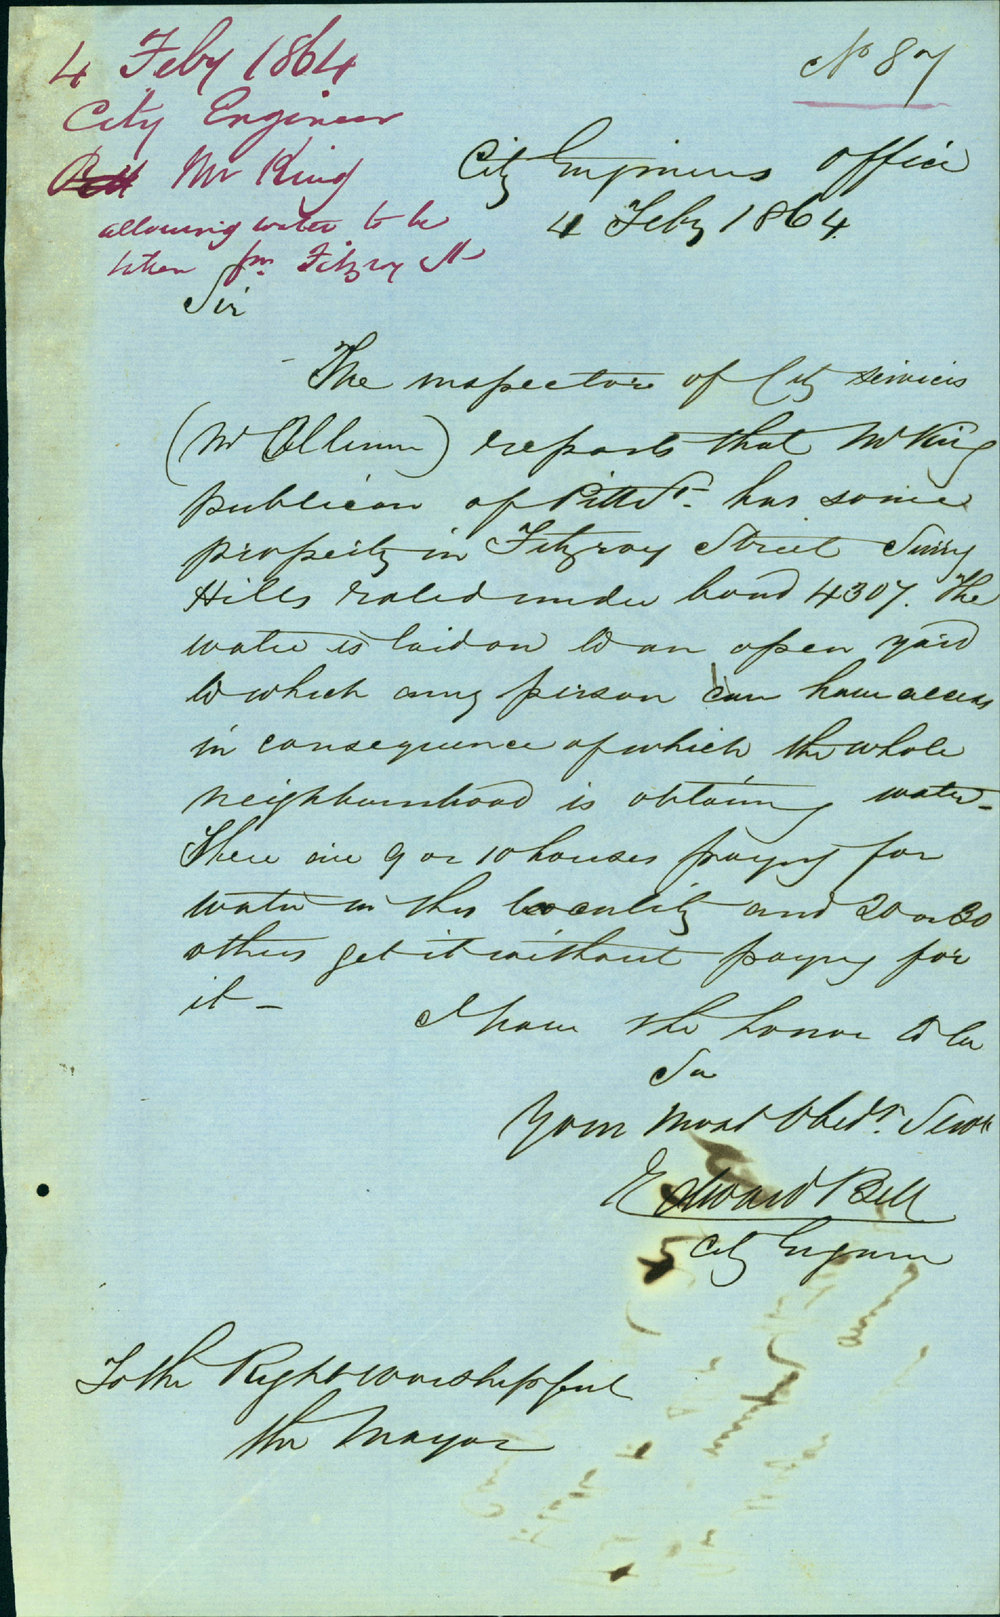 4 Feby 1864
City Engineer
Bell Mr King
allowing water to be
taken fm Fitzroy St
No 87
City Engineers Office
4 Feby 1864
Sir
The inspector of City services
(Mr ) reports that Mr King
publican of Pitt St. has some
property in Fitzroy Street Surry
Hills rated under 4307. The
water is laid on to an open yard
to which any person can have access
in consequence of which the whole
neighbourhood is obtaining water -
There are 9 or 10 houses paying for
water in this locality and 20 or 30
others get it without paying for
it -
I have the honor to be
Sir
Your most Obedt. Servt
Edward Bell
City Engineer
To the Right Worshipful
the Mayor